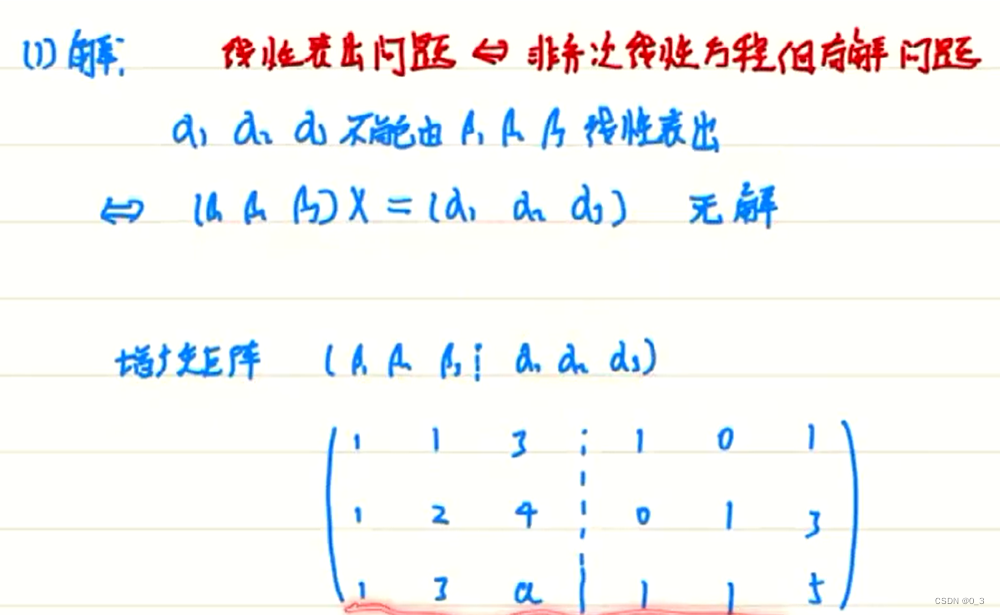 (1) 解: 线性表出问题 ⇔ 非齐次线性方程组有解问题
α₁ α₂ α₃ 不能由 β₁ β₂ β₃ 线性表出
⇔ (β₁ β₂ β₃) X = (α₁ α₂ α₃) 无解
增广矩阵 (β₁ β₂ β₃ ⋮ α₁ α₂ α₃)
1 1 3 ⋮ 1 0 1
1 2 4 ⋮ 0 1 3
1 3 a ⋮ 1 1 5
CSDN @0_3